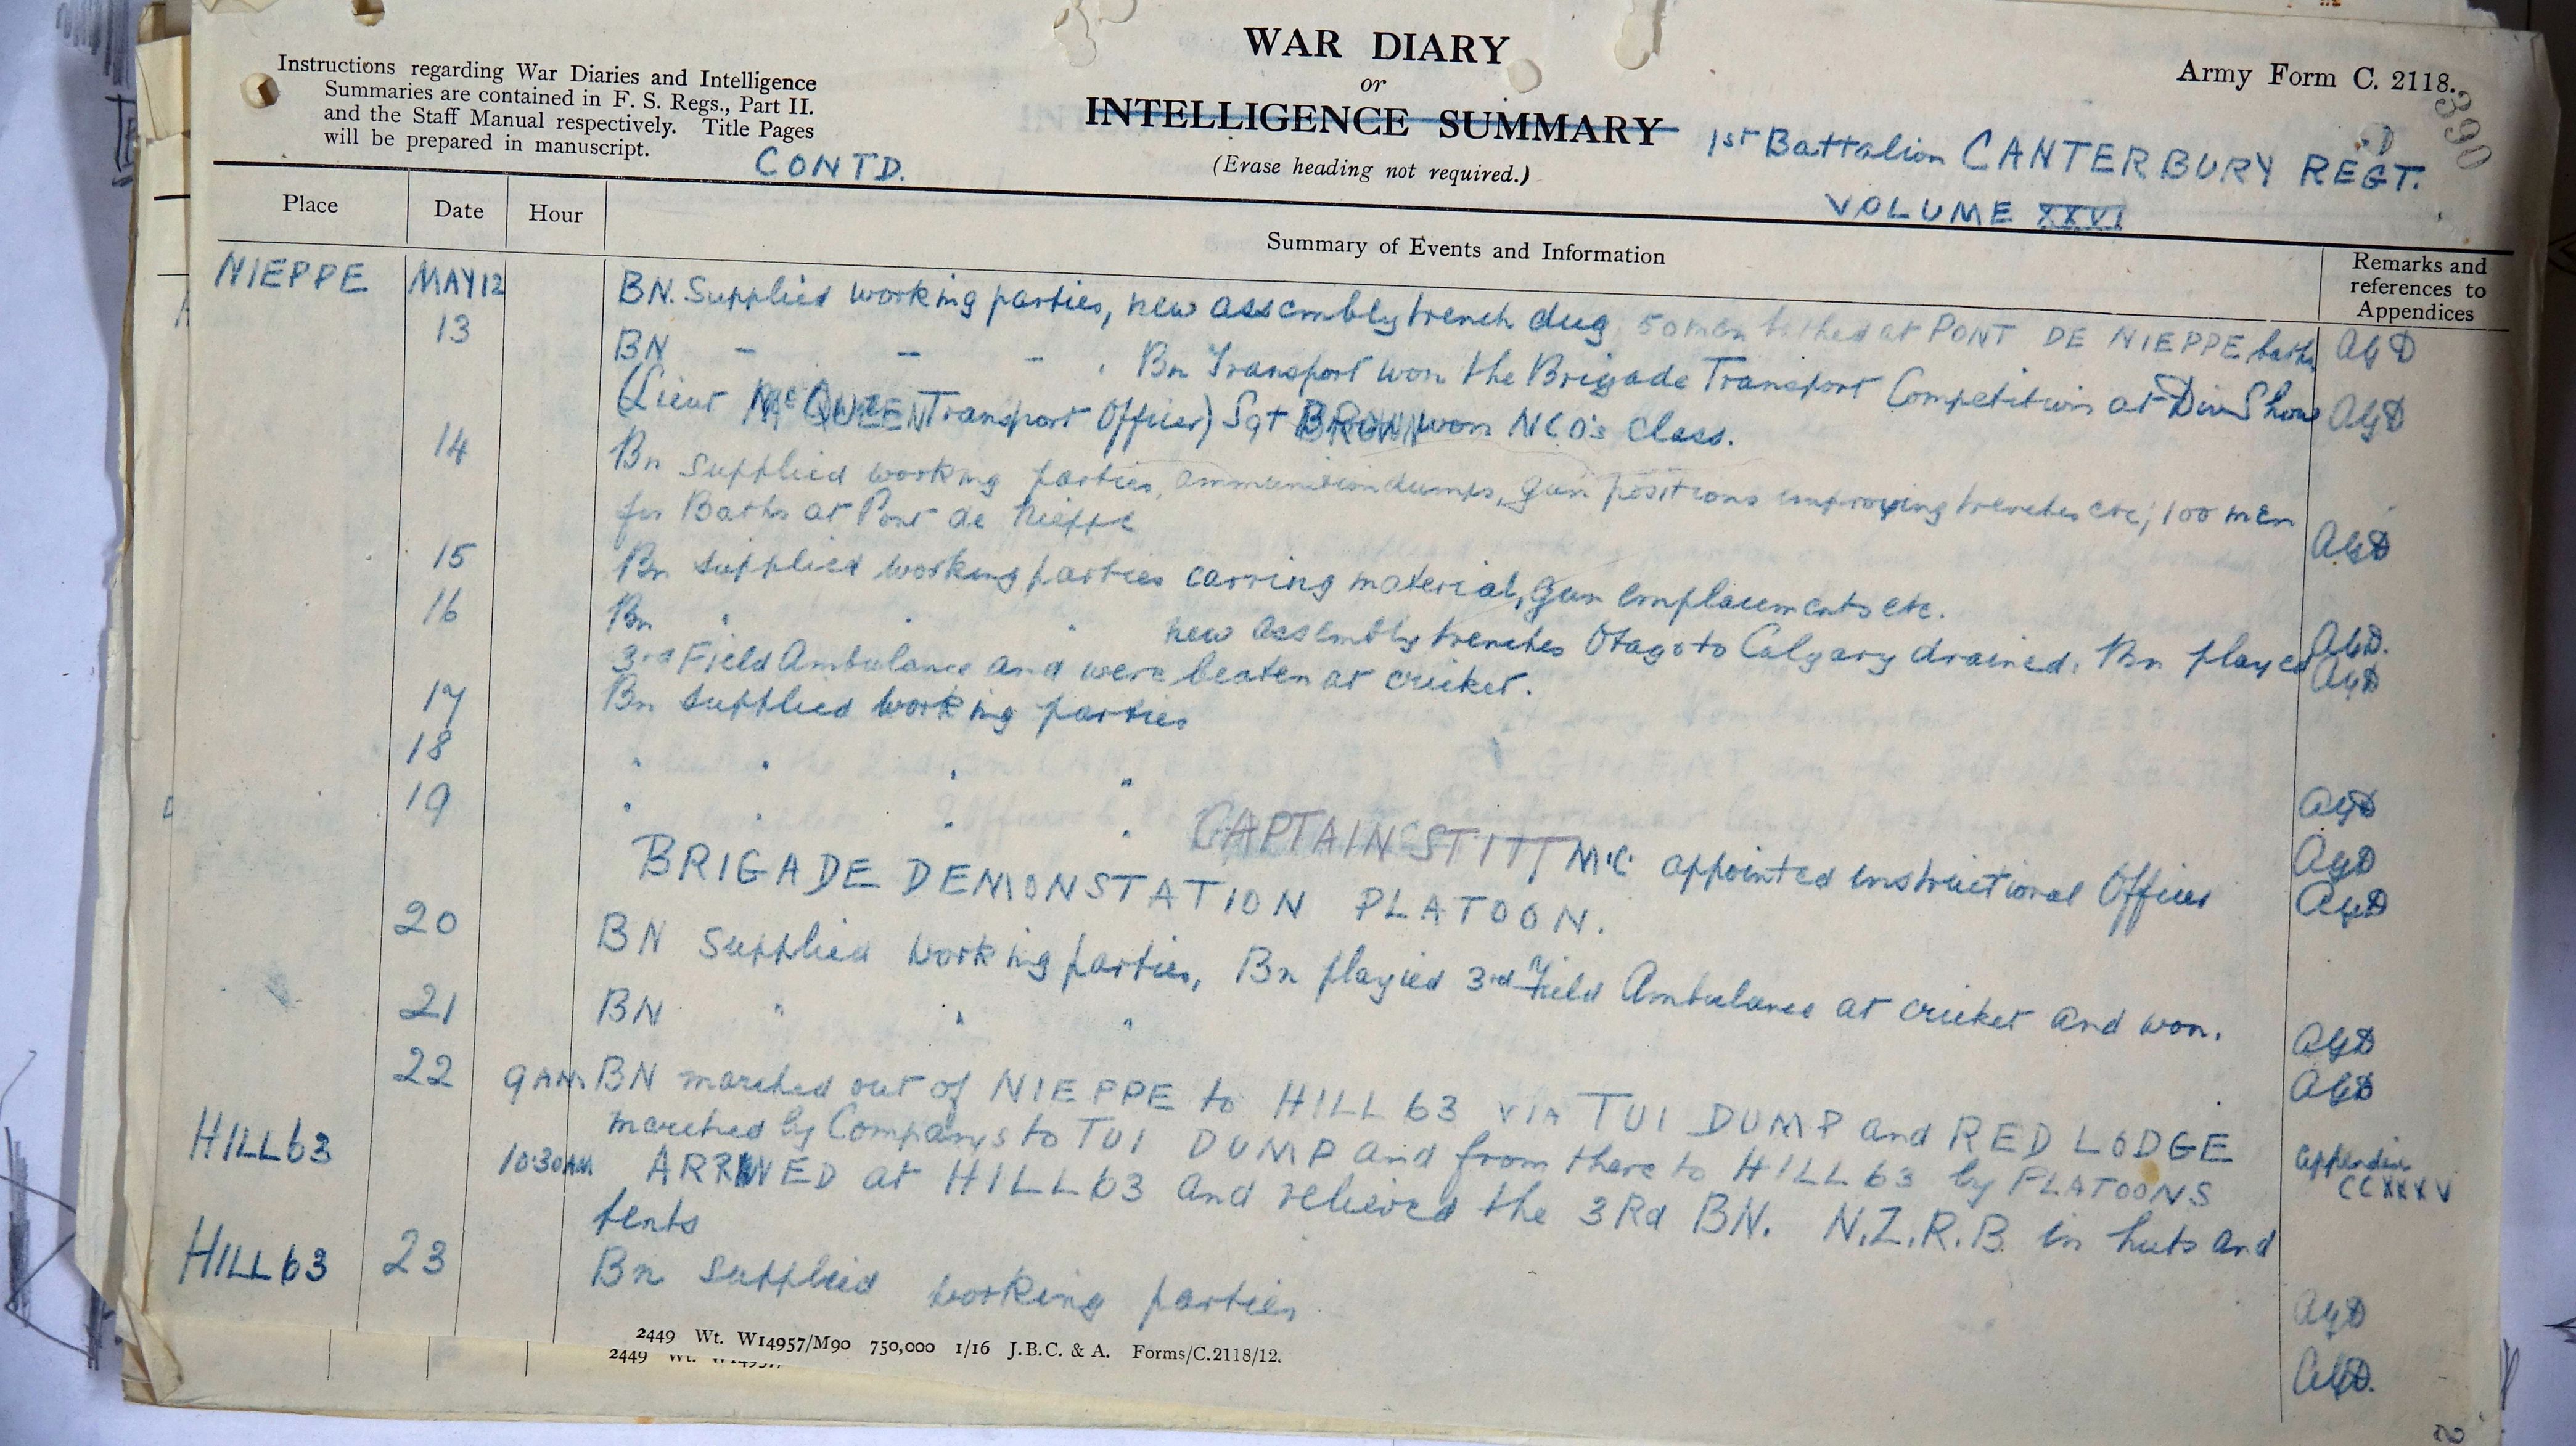 Instructions regarding War Diaries and Intelligence
Summaries are contained in F. S. Regs., Part II.
and the Staff Manual respectively. Title Pages
will be prepared in manuscript.
CONTD.
WAR DIARY
or
INTELLIGENCE SUMMARY
(Erase heading not required.)
Army Form C. 2118.
390
1st Battalion CANTERBURY REGT.
VOLUME XXVI
Place Date Hour Summary of Events and Information Remarks and
references to
Appendices
NIEPPE MAY 12 BN. Supplied working parties, new assembly trench dug 50 men bathed at PONT DE NIEPPE baths AGD
13 BN - - - . Bn Transport won the Brigade Transport Competition at Div Show
(Lieut McQUEEN Transport Officer) Sgt BROWN won NCO's Class. AGD
14 Bn supplied working parties, ammunition dumps, gun positions improving trenches etc; 100 men
for Baths at Pont de Nieppe AGD
15 Bn supplied working parties carring material, gun emplacements etc. AGD.
16 Bn " " " new assembly trenches Otago to Calgary drained. Bn played
3rd Field Ambulance and were beaten at cricket. AGD
17 Bn supplied working parties AGD
18 " " " " AGD
19 " " " " CAPTAIN STITT M.C. appointed instructional Officer AGD
BRIGADE DEMONSTATION PLATOON.
20 BN supplied working parties, Bn played 3rd Field Ambulance at cricket and won. AGD
21 BN " " " AGD
22 9AM BN marched out of NIEPPE to HILL 63 VIA TUI DUMP and RED LODGE
marched by Companys to TUI DUMP and from there to HILL 63 by PLATOONS appendix
CCXXXV
HILL 63 10:30AM ARRIVED at HILL 63 and relieved the 3Rd BN. N.Z.R.B. in huts and
tents AGD
HILL 63 23 Bn supplied working parties AGD.
2449 Wt. W14957/M90 750,000 1/16 J.B.C. & A. Forms/C.2118/12.
2449 Wt.